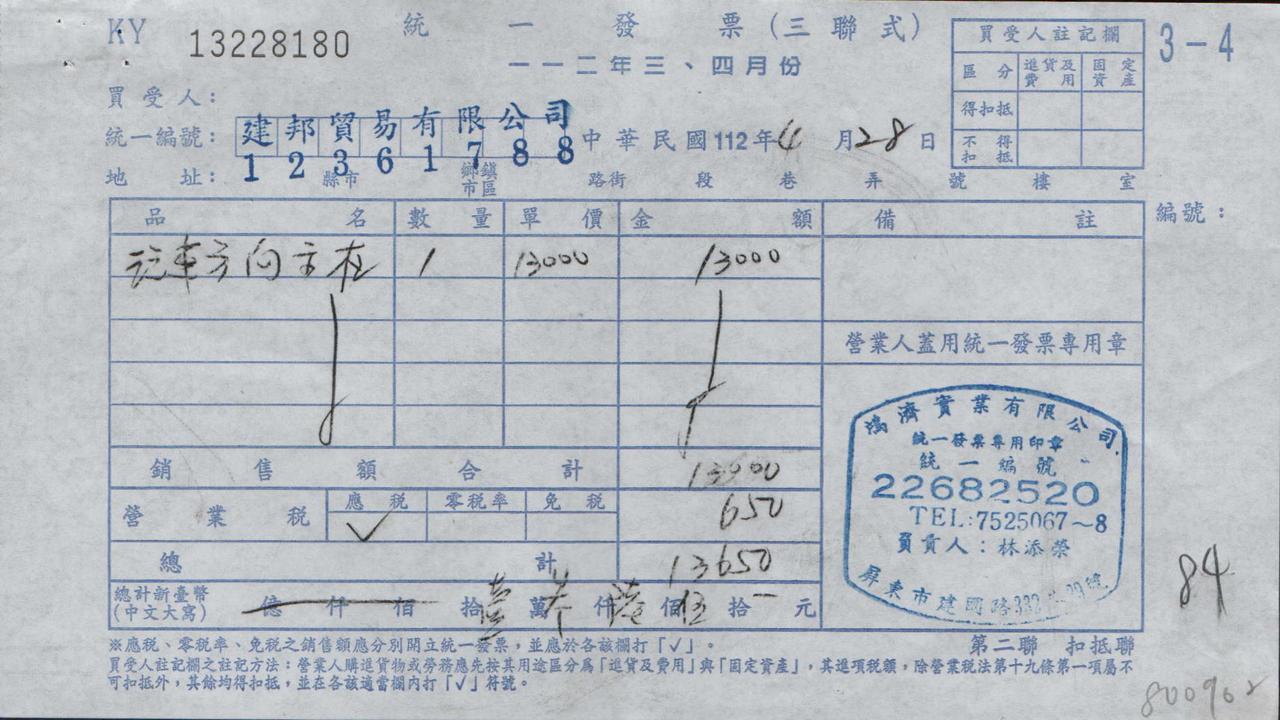 KY 13228180
統一發票(三聯式)
一一二年三、四月份
3-4
買受人註記欄
區分 進貨及費用 固定資產
得扣抵
不得扣抵
買受人:
建邦貿易有限公司
統一編號: 12361788
中華民國112年4月28日
地址: 縣市 鄉鎮市區 路街 段 巷 弄 號 樓 室
品名 數量 單價 金額 備註
編號:
汽車方向主在 1 13000 13000
營業人蓋用統一發票專用章
銷售額合計 13000
營業稅 應稅 ✓ 零稅率 免稅 650
總計 13650
總計新臺幣(中文大寫) 億 仟 佰 拾壹萬參仟陸佰伍拾 元
鴻濟實業有限公司
統一發票專用印章
統一編號
22682520
TEL:7525067~8
負責人:林添榮
屏東市建國路332
84
※應稅、零稅率、免稅之銷售額應分別開立統一發票,並應於各該欄打「✓」。
第二聯 扣抵聯
買受人註記欄之註記方法:營業人購進貨物或勞務應先按其用途區分為「進貨及費用」與「固定資產」,其進項稅額,除營業稅法第十九條第一項屬不
可扣抵外,其餘均得扣抵,並在各該適當欄內打「✓」符號。
800902